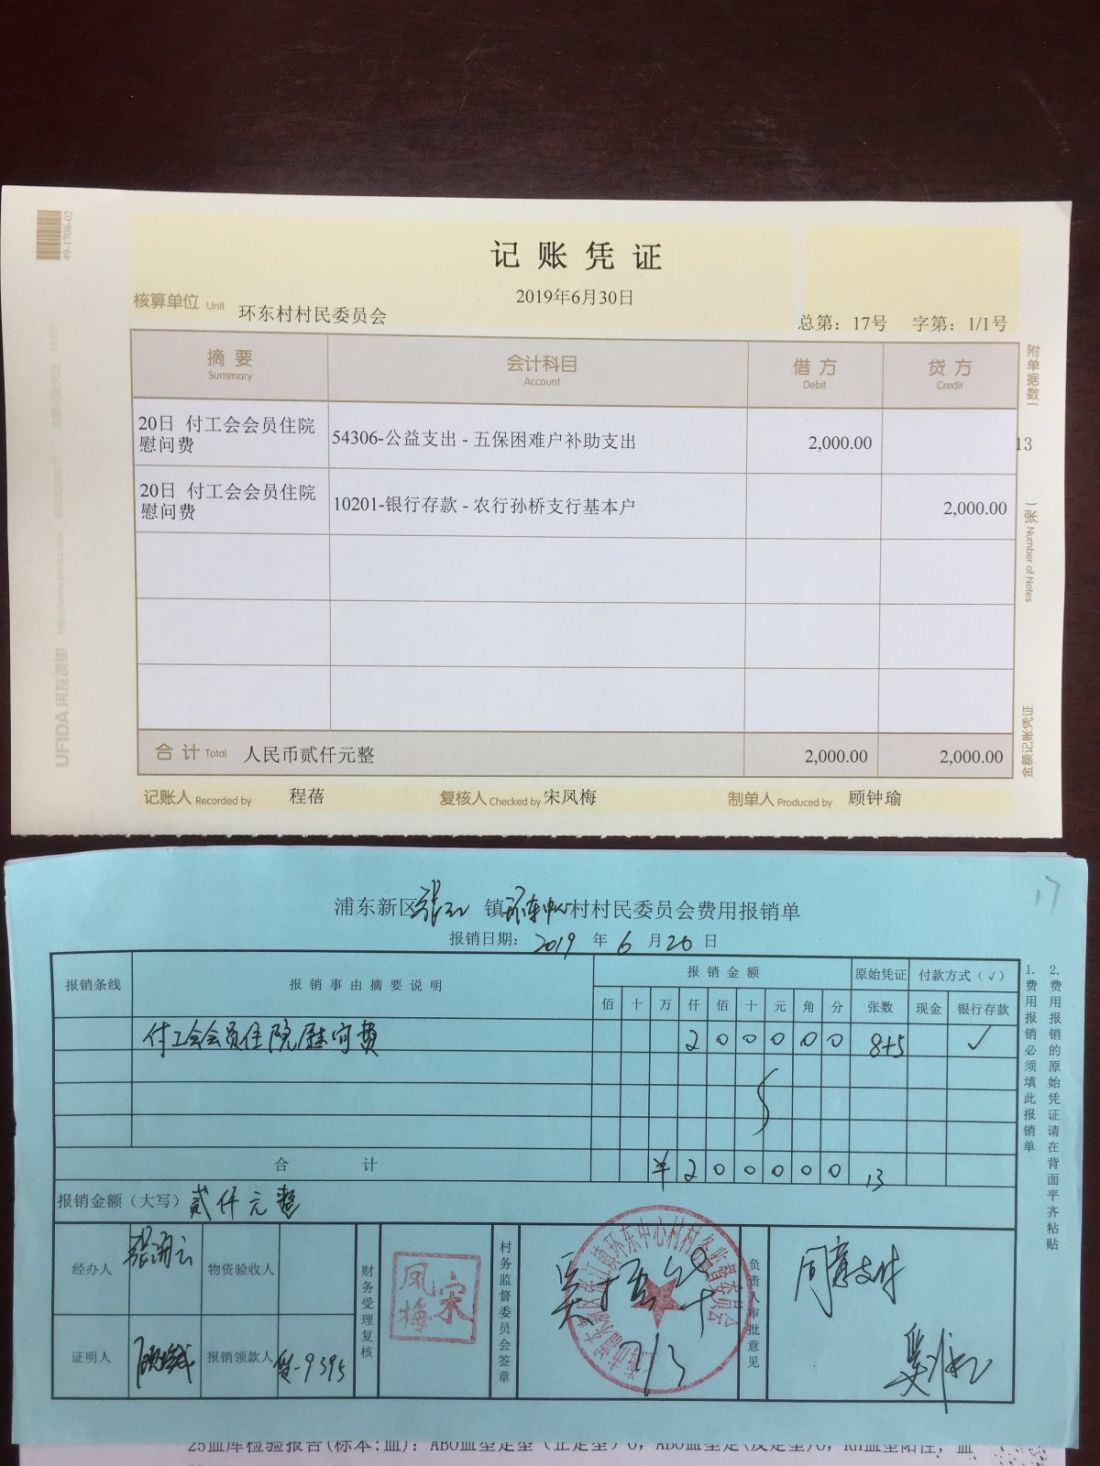 49-1708-02
记账凭证
2019年6月30日
核算单位 Unit 环东村村民委员会
总第：17号 字第：1/1号
摘要 会计科目 借方 贷方
Summary Account Debit Credit
附单据数（ 13 张） Number of Notes
20日 付工会会员住院慰问费 54306-公益支出 - 五保困难户补助支出 2,000.00
20日 付工会会员住院慰问费 10201-银行存款 - 农行孙桥支行基本户 2,000.00
合计 Total 人民币贰仟元整 2,000.00 2,000.00
记账人 Recorded by 程蓓 复核人 Checked by 宋凤梅 制单人 Produced by 顾钟瑜
UFIDA 用友表单
金额记账凭证
17
浦东新区张江镇环东中心村村民委员会费用报销单
报销日期：2019年6月20日
报销条线 报销事由摘要说明 报销金额 原始凭证 付款方式（√）
佰 十 万 仟 佰 十 元 角 分 张数 现金 银行存款
付工会会员住院慰问费 2 0 0 0 0 0 8+5 √
合计 ¥ 2 0 0 0 0 0 13
报销金额（大写）贰仟元整
经办人 物资验收人
证明人 报销领款人 9395
财务受理复核 宋凤梅
村务监督委员会签章
7/3
负责人审批意见 同意支付
1.费用报销必须填此报销单
2.费用报销的原始凭证请在背面平齐粘贴
25血库检验报告(标本:血): ABO血型定型（正定型）O, ABO血型定(反定型)O, Rh血型阳性, 血